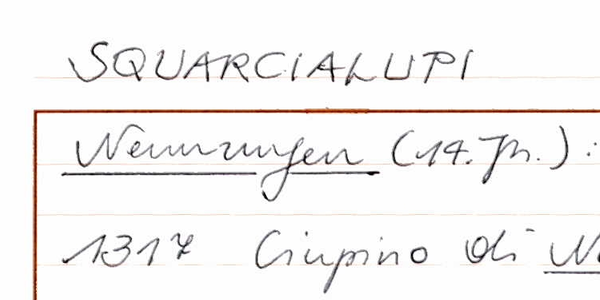 SQUARCIALUPI
Nennungen (14. Jh.) :
1317 Ciupino di